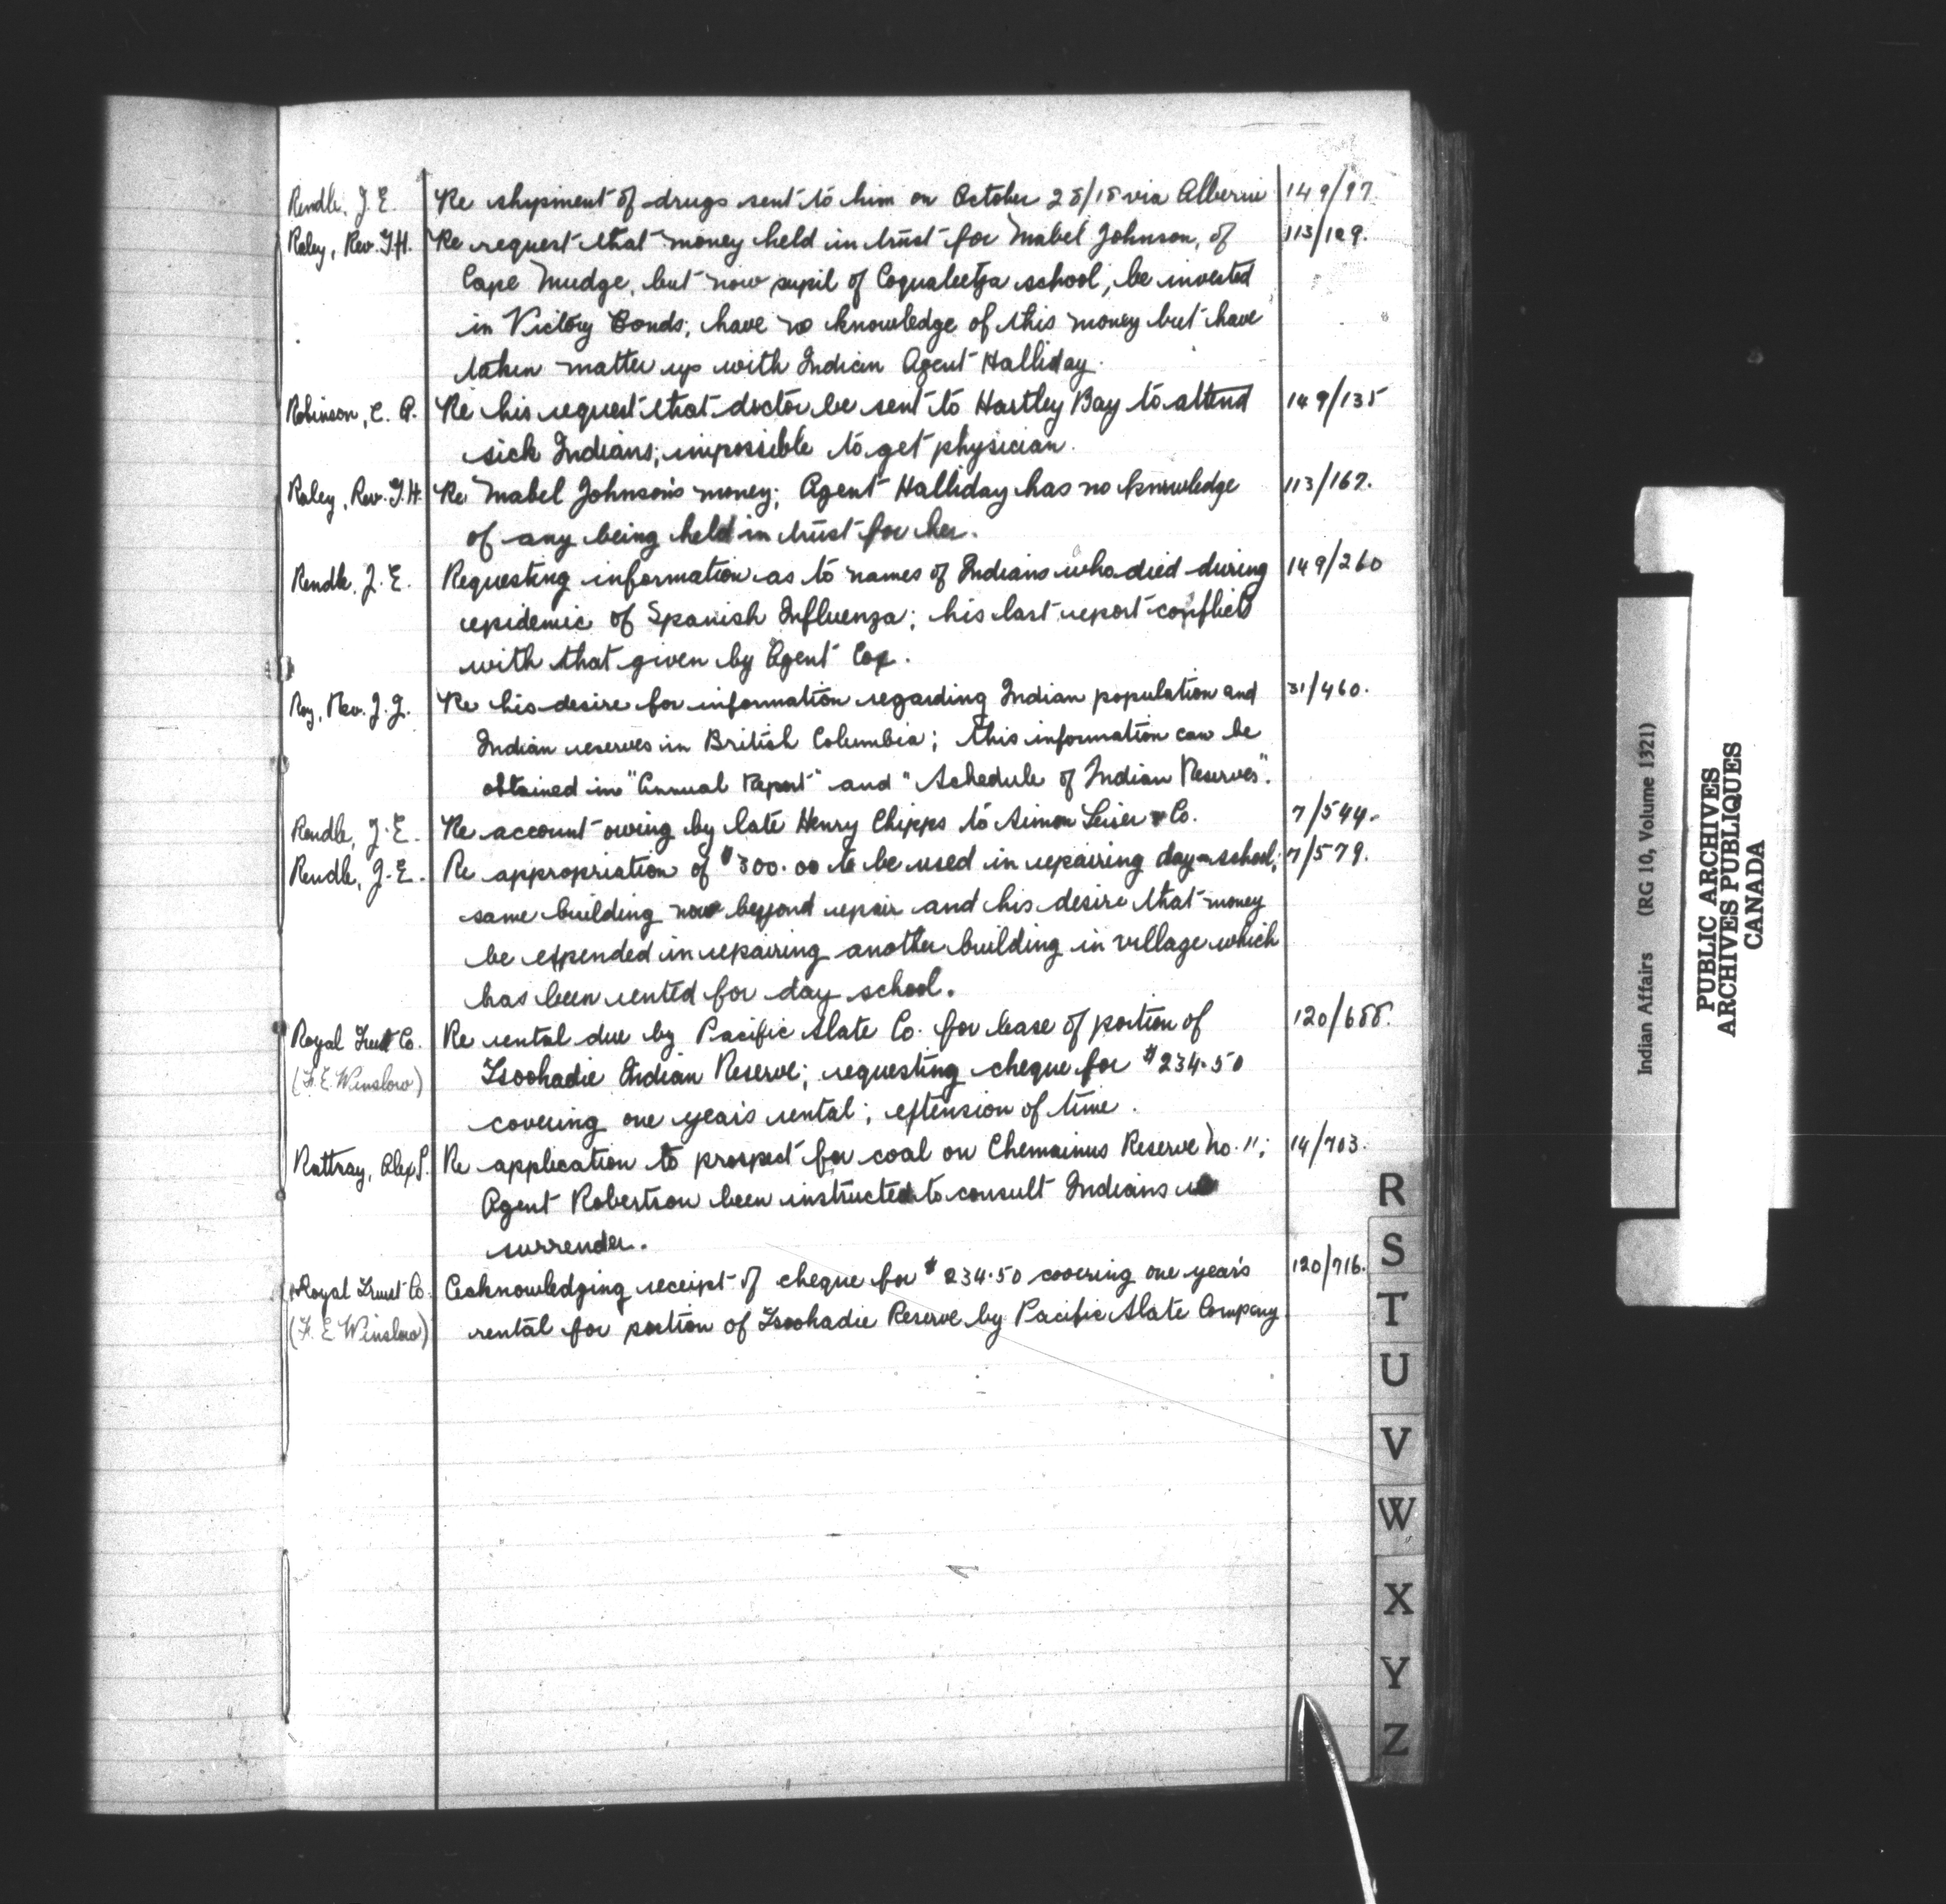 Rendle, J. E. Re shipment of drugs sent to him on October 28/18 via Alberni 149/97
Raley, Rev. G.H. Re request that money held in trust for Mabel Johnson, of 113/129.
Cape Mudge, but now pupil of Coqualeetza school, be invested
in Victory Bonds; have no knowledge of this money but have
taken matter up with Indian Agent Halliday.
Robinson, C. A. Re his request that doctor be sent to Hartley Bay to attend 149/135
sick Indians; impossible to get physician.
Raley, Rev. G.H. Re Mabel Johnson's money; Agent Halliday has no knowledge 113/167.
of any being held in trust for her.
Rendle, J. E. Requesting information as to names of Indians who died during 149/260
epidemic of Spanish Influenza; his last report conflicts
with that given by Agent Cox.
Roy, Rev. J. J. Re his desire for information regarding Indian population and 31/460.
Indian reserves in British Columbia; this information can be
obtained in "Annual Report" and "Schedule of Indian Reserves".
Rendle, J. E. Re account owing by late Henry Chipps to Simon Leiser & Co. 7/544.
Rendle, J. E. Re appropriation of $300.00 to be used in repairing day-school; 7/579.
same building now beyond repair and his desire that money
be expended in repairing another building in village which
has been rented for day school.
Royal Trust Co. Re rental due by Pacific Slate Co. for lease of portion of 120/688.
(F. E. Winslow) Tsoohadie Indian Reserve; requesting cheque for $234.50
covering one year's rental; extension of time.
Rattray, Alex P. Re application to prospect for coal on Chemainus Reserve No. 11; 14/703.
Agent Robertson been instructed to consult Indians re
surrender.
Royal Trust Co. Acknowledging receipt of cheque for $234.50 covering one year's 120/716.
(F. E. Winslow) rental for portion of Tsoohadie Reserve by Pacific Slate Company
R
S
T
U
V
W
X
Y
Z
Indian Affairs (RG 10, Volume 1321)
PUBLIC ARCHIVES
ARCHIVES PUBLIQUES
CANADA